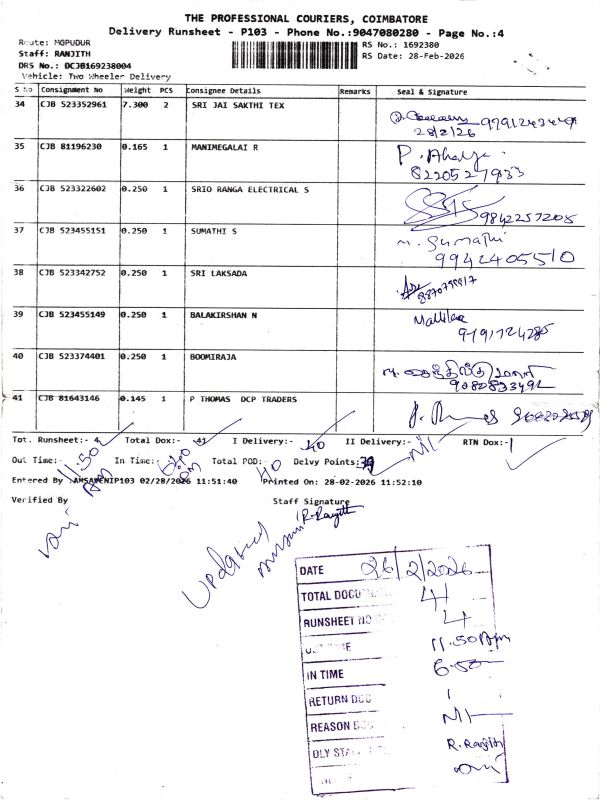 THE PROFESSIONAL COURIERS, COIMBATORE
Delivery Runsheet - P103 - Phone No.:9047080280 - Page No.:4
Route: MGPUDUR
RS No.: 1692380
Staff: RANJITH
RS Date: 28-Feb-2026
DRS No.: DCJB169238004
Vehicle: Two Wheeler Delivery
S No Consignment No Weight PCS Consignee Details Remarks Seal & Signature
34 CJB 523352961 7.300 2 SRI JAI SAKTHI TEX
28/2/26
35 CJB 81196230 0.165 1 MANIMEGALAI R P. Ahalya
8220527933
36 CJB 523322602 0.250 1 SRIO RANGA ELECTRICAL S
9842257205
37 CJB 523455151 0.250 1 SUMATHI S M. Sumathi
9942405510
38 CJB 523342752 0.250 1 SRI LAKSADA
39 CJB 523455149 0.250 1 BALAKIRSHAN N Mallika
40 CJB 523374401 0.250 1 BOOMIRAJA
41 CJB 81643146 0.145 1 P THOMAS DCP TRADERS
Tot. Runsheet:- 4 Total Dox:- 41 I Delivery:- 40 II Delivery:- Nil RTN Dox:- 1
Out Time:- 11.50 Am In Time:- Total POD:- 40 Delvy Points:
Entered By 02/28/2026 11:51:40 Printed On: 28-02-2026 11:52:10
Verified By Staff Signature
R. Ranjith
Updated
DATE 26/2/2026
TOTAL 41
RUNSHEET NO 4
11.50 Am
IN TIME 6.50
RETURN DOC 1
REASON Nil
DLY R. Ranjith